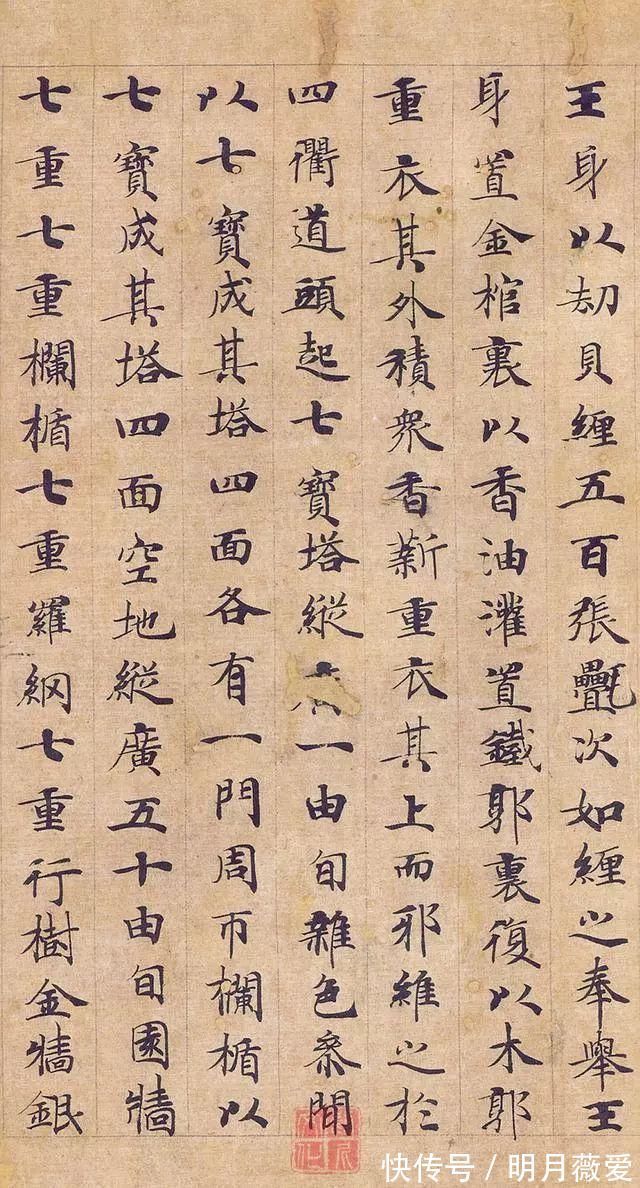 王身以劫貝纏五百張氎次如纏之奉舉王
身置金棺裏以香油灌置鐵郭裏復以木郭
重衣其外積衆香薪重衣其上而邪維之於
四衢道頭起七寶塔縱廣一由旬雜色叅間
以七寶成其塔四面各有一門周帀欄楯以
七寶成其塔四面空地縱廣五十由旬園牆
七重七重欄楯七重羅網七重行樹金牆銀
快传号/明月薇爱